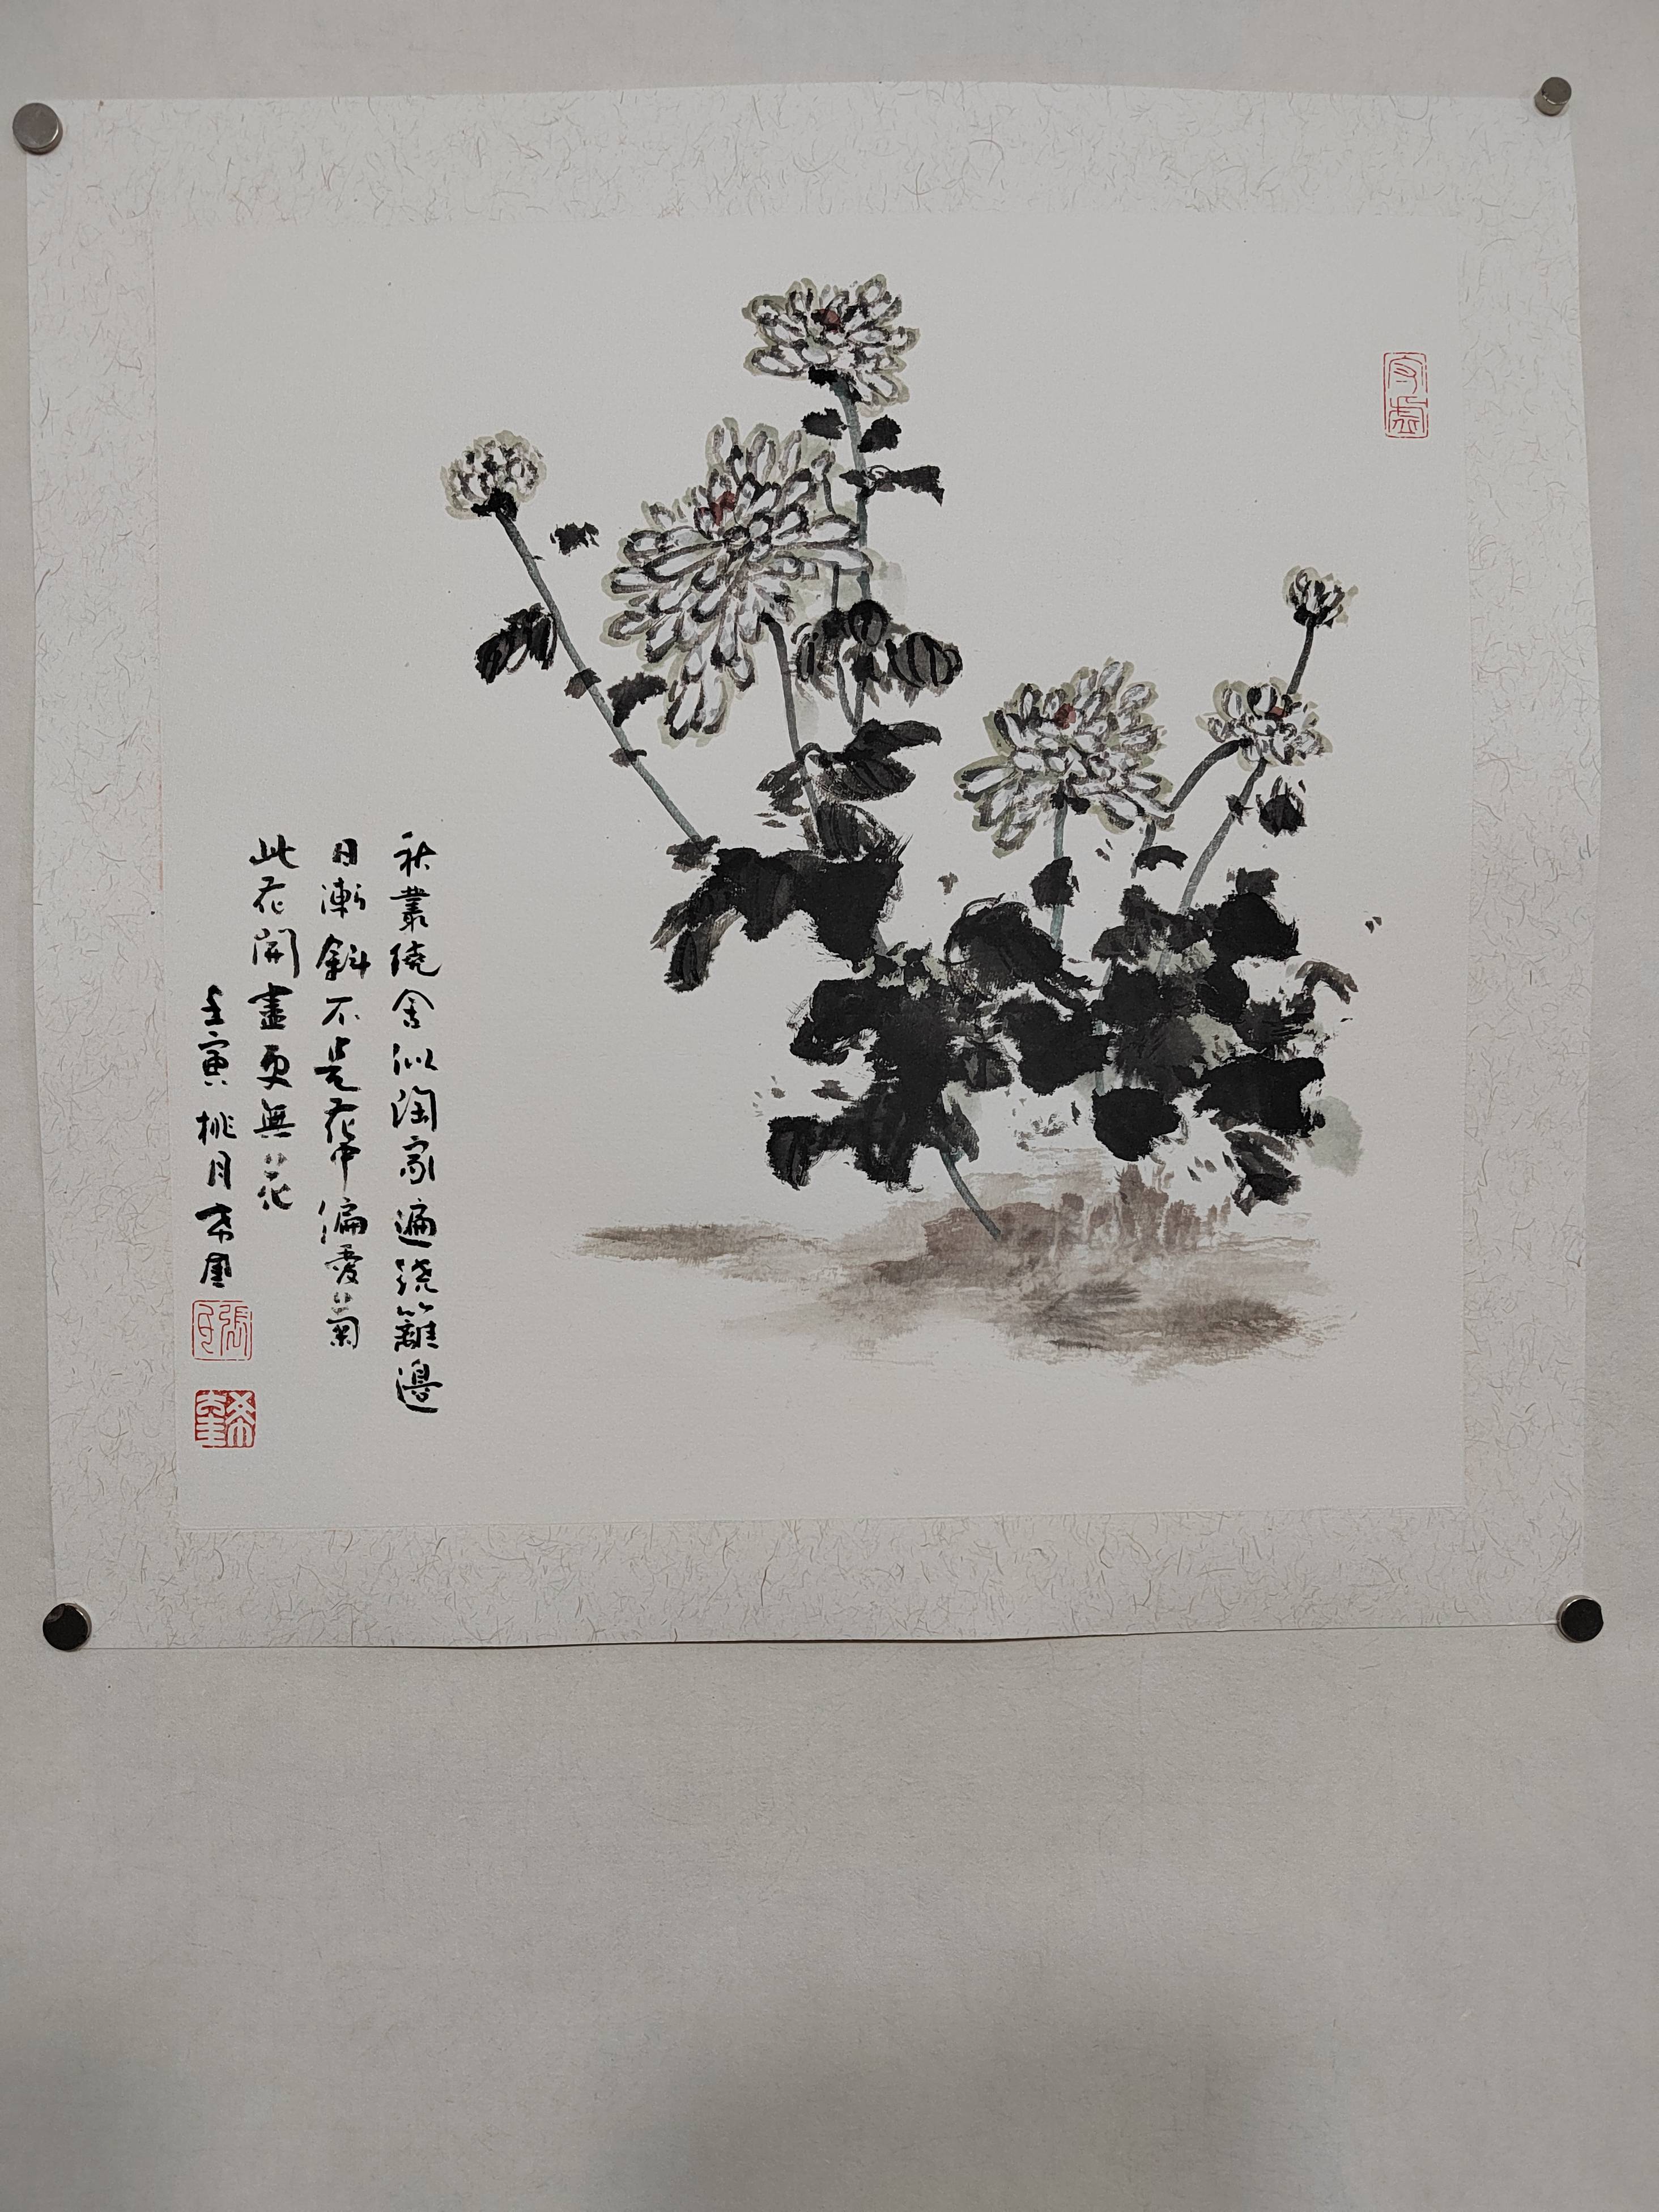 守虛
秋叢繞舍似陶家遍繞籬邊
日漸斜不是花中偏愛菊
此花開盡更無花
壬寅桃月希
張氏